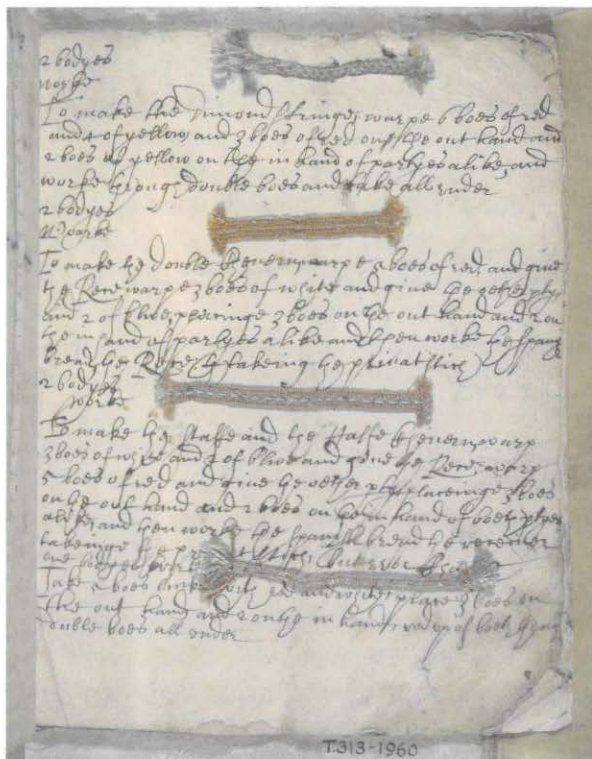 2 bodyes
worke
To make the Dimond stringe, warpe 6 boes of red
and 4 of yellow, and 3 boes of red on the out hand and
2 boes of yellow on the in hand of partyes alike, and
worke through double boes and take all under
2 bodyes
worke
To make the double warpe 5 boes of red, and give
the warpe 3 boes of white and give the other ptye
and 2 of blwe, placeinge 3 boes on the out hand and 2 on
the in hand of partyes alike and then worke the span
bread, the takeing the privat stich
2 bodyes
worke
To make the staffe and the halfe warp
3 boes of and 2 of blwe and give the warp
5 boes of red and give the other ptye, placeinge 3 boes
on the out hand and 2 boes on the in hand of boeth ptyes
alike, and then worke the spanish bread the receiver
takeinge the stich
Take 5 boes with red and white, place 3 boes on
the out hand and 2 on the in hand, of boeth
double boes all under
T.313-1960